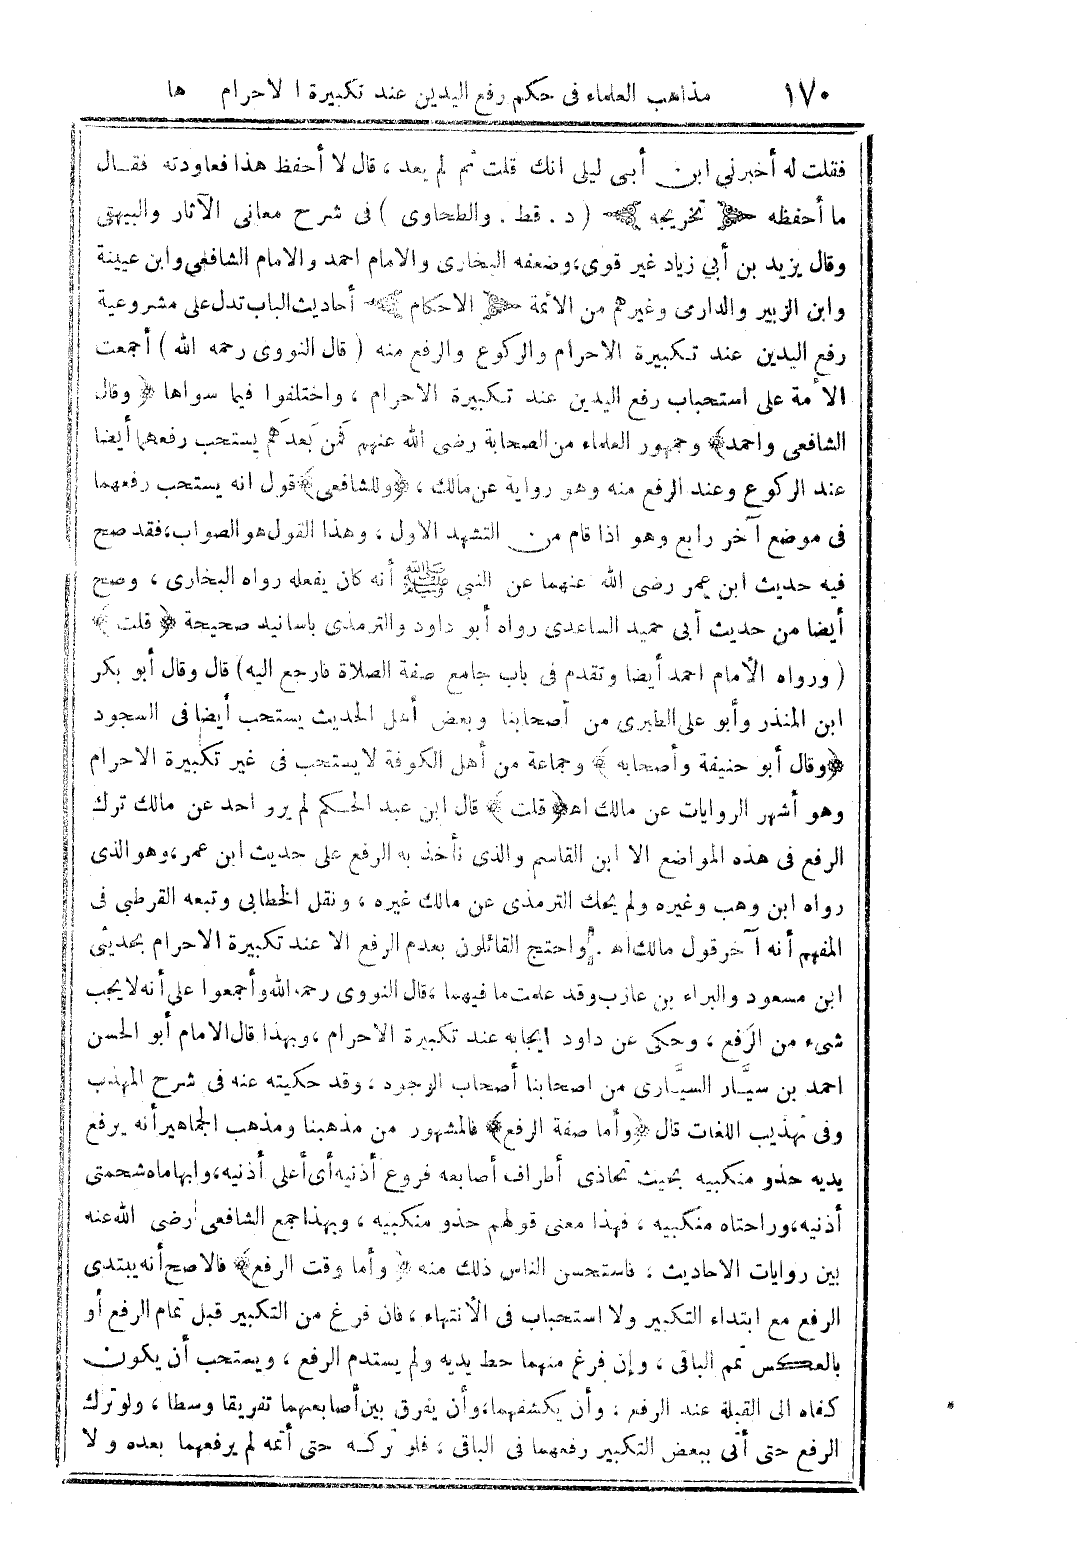 ١٧٠ مذاهب العلماء فى حكم رفع اليدين عند تكبيرة الاحرام ها
فقلت له أخبرني ابن أبى ليلى انك قلت ثم لم يعد ، قال لا أحفظ هذا فعاودته فقـال
ما أحفظه ﴿ تخريجه ﴾ ( د . قط . والطحاوى ) فى شرح معانى الآثار والبيهقى
وقال يزيد بن أبي زياد غير قوى، وضعفه البخارى والامام احمد والامام الشافعى وابن عيينة
وابن الزبير والدارمى وغيرهم من الأئمة ﴿ الاحكام ﴾ أحاديث الباب تدل على مشروعية
رفع اليدين عند تـكبيرة الاحرام والركوع والرفع منه ( قال النووى رحمه الله ) أجمعت
الأمة على استحباب رفع اليدين عند تـكبيرة الاحرام ، واختلفوا فيما سواها ﴿ وقال
الشافعى واحمد﴾ وجمهور العلماء من الصحابة رضى الله عنهم فَمن بَعدَهم يستحب رفعهما أيضا
عند الركوع وعند الرفع منه وهو رواية عن مالك ، ﴿وللشافعى﴾ قول انه يستحب رفعهما
فى موضع آخر رابع وهو اذا قام من التشهد الاول ، وهذا القول هو الصواب، فقد صح
فيه حديث ابن عمر رضى الله عنهما عن النبي ﷺ أنه كان يفعله رواه البخارى ، وصح
أيضا من حديث أبى حميد الساعدى رواه أبو داود والترمذى باسانيد صحيحة ﴿ قلت ﴾
( ورواه الأمام احمد أيضا وتقدم فى باب جامع صفة الصلاة فارجع اليه) قال وقال أبو بكر
ابن المنذر وأبو على الطبرى من أصحابنا وبعض أهل الحديث يستحب أيضا فى السجود
﴿وقال أبو حنيفة وأصحابه ﴾ وجماعة من أهل الكوفة لا يستحب فى غير تكبيرة الاحرام
وهو أشهر الروايات عن مالك اه﴿ قلت ﴾ قال ابن عبد الحـكم لم يرو احد عن مالك ترك
الرفع فى هذه المواضع الا ابن القاسم والذى نأخذ به الرفع على حديث ابن عمر، وهو الذى
رواه ابن وهب وغيره ولم يحك الترمذى عن مالك غيره ، ونقل الخطابى وتبعه القرطبى فى
المفهم أنه آخر قول مالك اه . واحتج القائلون بعدم الرفع الا عند تكبيرة الاحرام بحديثى
ابن مسعود والبراء بن عازب وقد علمت ما فيهما ، قال النووى رحمه الله وأجمعوا على أنه لا يجب
شىء من الرَفع ، وحكى عن داود ايجابه عند تكبيرة الاحرام ، وبهذا قال الامام أبو الحسن
احمد بن سيَّار السيَّارى من اصحابنا أصحاب الوجوه ، وقد حكيته عنه فى شرح المهذب
وفى تهذيب اللغات قال ﴿وأما صفة الرفع﴾ فالمشهور من مذهبنا ومذهب الجماهير أنه يرفع
يديه حذو منكبيه بحيث تحاذى أطراف أصابعه فروع أذنيه أى أعلى أذنيه، وابهاماه شحمتى
أذنيه، وراحتاه منكبيه ، فهذا معنى قولهم حذو منكبيه ، وبهذا جمع الشافعى رضى الله عنه
بين روايات الاحاديث ، فاستحسن الناس ذلك منه ﴿ وأما وقت الرفع﴾ فالاصح أنه يبتدى
الرفع مع ابتداء التكبير ولا استحباب فى الأنتهاء ، فان فرغ من التكبير قبل تمام الرفع أو
بالعـكس تمم الباقى ، وإن فرغ منهما حط يديه ولم يستدم الرفع ، ويستحب أن يكون
كفاه الى القبلة عند الرفع ، وأن يكشفهما، وأن يفرق بين أصابعهما تفريقا وسطا ، ولو ترك
الرفع حتى أتى ببعض التكبير رفعهما فى الباقى ، فلو تركـه حتى أتمه لم يرفعهما بعده ولا